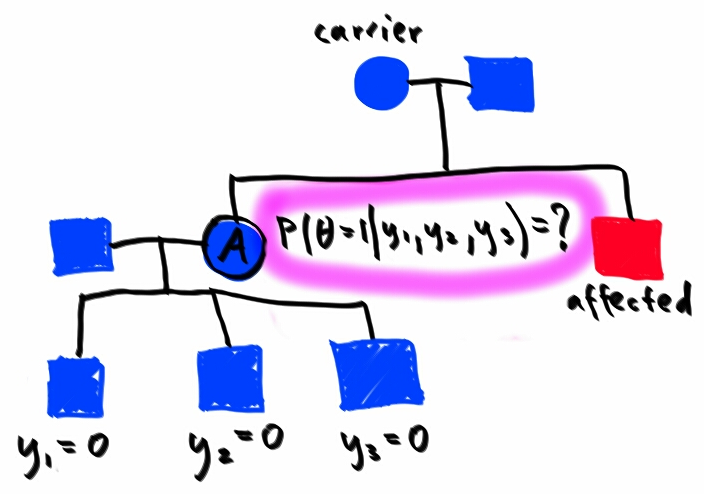 carrier
A
P(θ=1|y₁,y₂,y₃)=?
affected
y₁=0
y₂=0
y₃=0